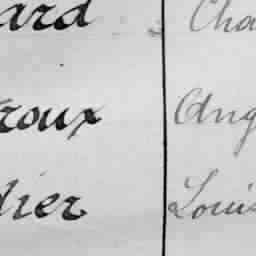 ard Cha
roux Aug
dier Louis